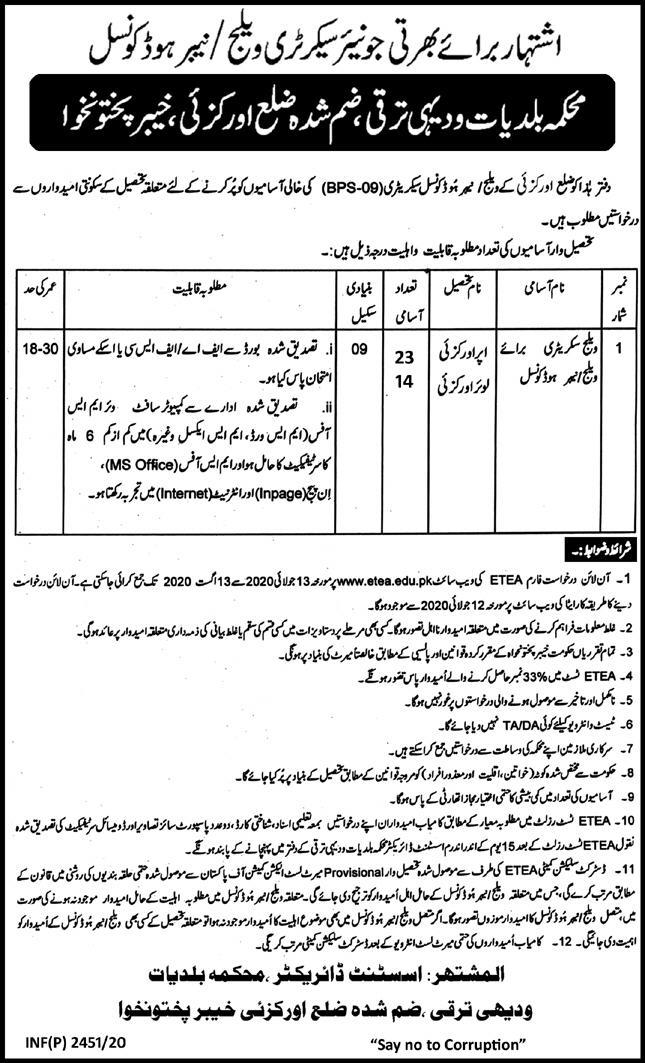 اشتہار برائے بھرتی جونیئر سیکرٹری ویلج / نیبر ہوڈ کونسل
محکمہ بلدیات و دیہی ترقی، ضم شدہ ضلع اورکزئی، خیبر پختونخوا
دفتر ہذا کو ضلع اورکزئی کے ویلج / نیبر ہُوڈ کونسل سیکریٹری (BPS-09) کی خالی آسامیوں کو پُر کرنے کے لئے متعلقہ تحصیل کے سکونتی امیدواروں سے
درخواستیں مطلوب ہیں۔
تحصیل وار آسامیوں کی تعداد مطلوبہ قابلیت و اہلیت درجہ ذیل ہیں:۔
نمبر شمار
نام آسامی
نام تحصیل
تعداد آسامی
بنیادی سکیل
مطلوبہ قابلیت
عمر کی حد
1
ویلج سکریٹری برائے
ویلج / نیبر ہوڈ کونسل
اپر اورکزئی
لوئر اورکزئی
23
14
09
i. تصدیق شدہ بورڈ سے ایف اے / ایف ایس سی یا اسکے مساوی
امتحان پاس کیا ہو۔
ii. تصدیق شدہ ادارے سے کمپیوٹر سافٹ وئر ایم ایس
آفس (ایم ایس ورڈ، ایم ایس ایکسل وغیرہ) میں کم از کم 6 ماہ
کا سرٹیفیکیٹ کا حامل ہو اور ایم ایس آفس (MS Office)،
اِن پیج (Inpage) اور انٹرنیٹ (Internet) میں تجربہ رکھتا ہو۔
18-30
شرائط و ضوابط:۔
1۔ آن لائن درخواست فارم ETEA کی ویب سائٹ www.etea.edu.pk پر مورخہ 13 جولائی 2020 سے 13 اگست 2020 تک جمع کرائی جاسکتی ہے۔ آن لائن درخواست
دینے کا طریقہ کار ایٹا کی ویب سائٹ پر مورخہ 12 جولائی 2020 سے موجود ہوگا۔
2۔ غلط معلومات فراہم کرنے کی صورت میں متعلقہ امیدوار نا اہل تصور ہوگا۔ کسی بھی مرحلے پر دستاویزات میں کسی قسم کی سقم یا غلط بیانی کی ذمہ داری متعلقہ امیدوار پر عائد ہوگی۔
3۔ تمام تقرریاں حکومت خیبر پختونخواہ کے مقرر کردہ قوانین اور پالیسی کے مطابق خالصتاً میرٹ کی بنیاد پر ہونگی۔
4۔ ETEA ٹسٹ میں 33% نمبر حاصل کرنے والے اُمیدوار پاس تصور ہونگے۔
5۔ نامکمل اور تاخیر سے موصول ہونے والی درخواستوں پر غور نہیں ہوگا۔
6۔ ٹیسٹ و انٹرویو کیلئے کوئی TA/DA نہیں دیا جائے گا۔
7۔ سرکاری ملازمین اپنے محکمہ کی وساطت سے درخواستیں جمع کراسکتے ہیں۔
8۔ حکومت سے مختص شدہ کوٹہ (خواتین، اقلیت اور معذور افراد) کو مروجہ قوانین کے مطابق تحصیل کے بنیاد پر پُر کیا جائے گا۔
9۔ آسامیوں کی تعداد میں کمی بیشی کا حتمی اختیار مجاز اتھارٹی کے پاس ہوگا۔
10۔ ETEA ٹسٹ رزلٹ میں مطلوبہ معیار کے مطابق کامیاب امیدواران اپنے درخواستیں بمعہ تعلیمی اسناد، شناختی کارڈ، دو عدد پاسپورٹ سائز تصاویر اور ڈومیسائل سرٹیفیکیٹ کی تصدیق شدہ
نقول ETEA ٹسٹ رزلٹ کے بعد 15 یوم کے اندر اندر اسسٹنٹ ڈائریکٹر محکمہ بلدیات و دیہی ترقی کے دفتر میں پہنچانے کے پابند ہونگے۔
11۔ ڈسٹرکٹ سلیکشن کمیٹی ETEA کی طرف سے موصول شدہ تحصیل وار Provisional میرٹ لسٹ الیکشن کمیشن آف پاکستان سے موصول شدہ حتمی حلقہ بندیوں کی روشنی میں قانون کے
مطابق مرتب کرے گی، جس میں متعلقہ ویلج / نیبر ہُوڈ کونسل کے حامل اہل اُمیدوار کو ترجیح دی جائے گی۔ متعلقہ ویلج / نیبر ہُوڈ کونسل میں مطلوبہ اہلیت کے حامل امیدوار موجود نہ ہونے کی صورت
میں، متصل ویلج / نیبر ہُوڈ کونسل کا امیدوار موزوں تصور ہوگا۔ اگر متصل ویلج / نیبر ہُوڈ کونسل میں بھی موضوع اہلیت کا اُمیدوار موجود نہ ہو تو متعلقہ تحصیل کے کسی بھی ویلج / نیبر ہُوڈ کونسل کے اُمیدوار کو
اہمیت دی جائیگی۔ 12۔ کامیاب اُمیدواروں کی حتمی میرٹ لسٹ انٹرویو کے بعد ڈسٹرکٹ سلیکشن کمیٹی مرتب کریگی۔
المشتہر: اسسٹنٹ ڈائریکٹر، محکمہ بلدیات
ودیہی ترقی، ضم شدہ ضلع اورکزئی خیبر پختونخوا
INF(P) 2451/20
“Say no to Corruption”